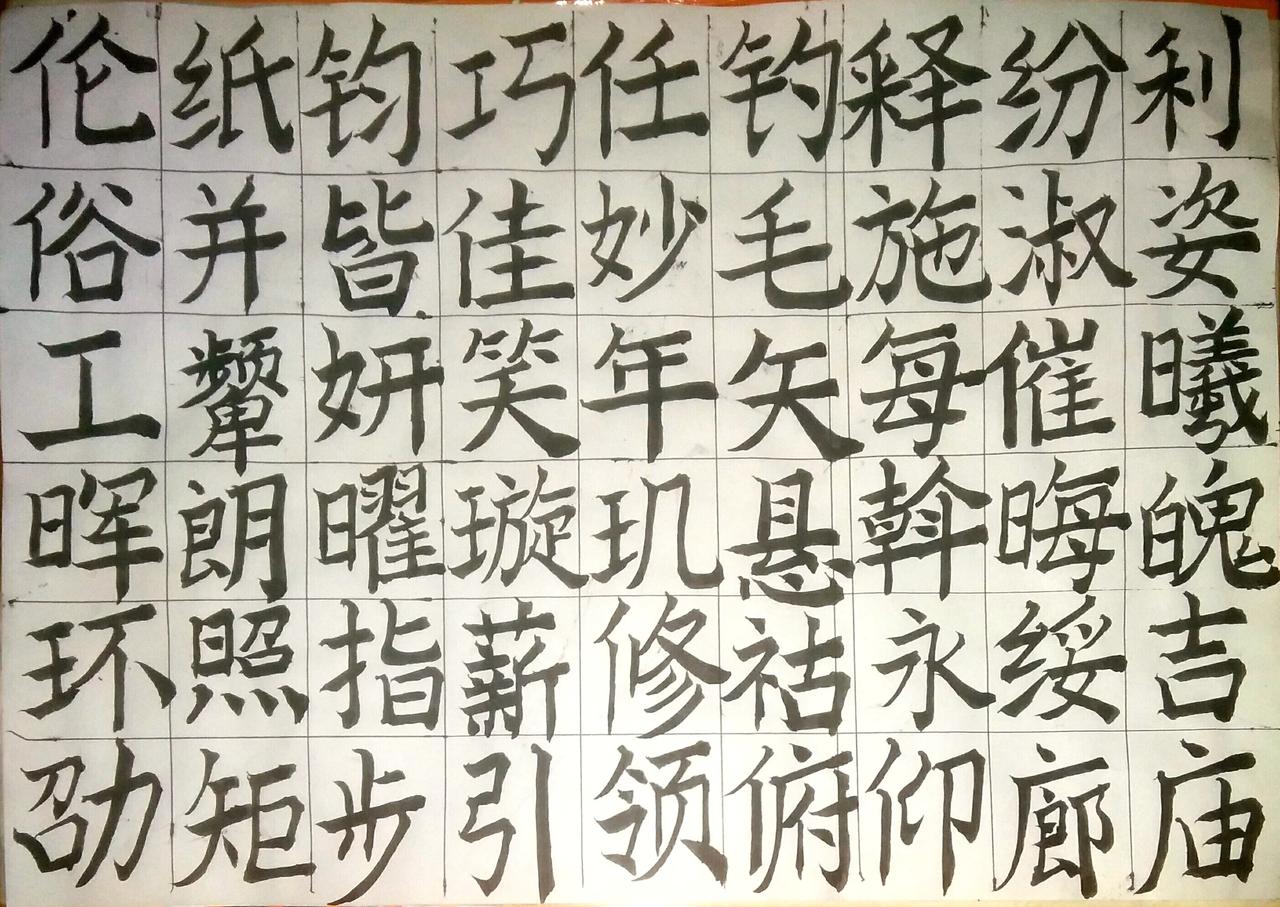 伦纸钧巧任钓释纷利
俗并皆佳妙毛施淑姿
工颦妍笑年矢每催曦
晖朗曜璇玑悬斡晦魄
环照指薪修祜永绥吉
劭矩步引领俯仰廊庙